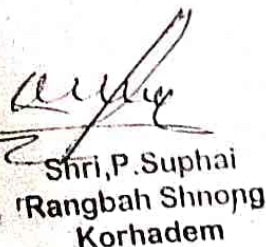 Shri,P.Suphai
Rangbah Shnong
Korhadem